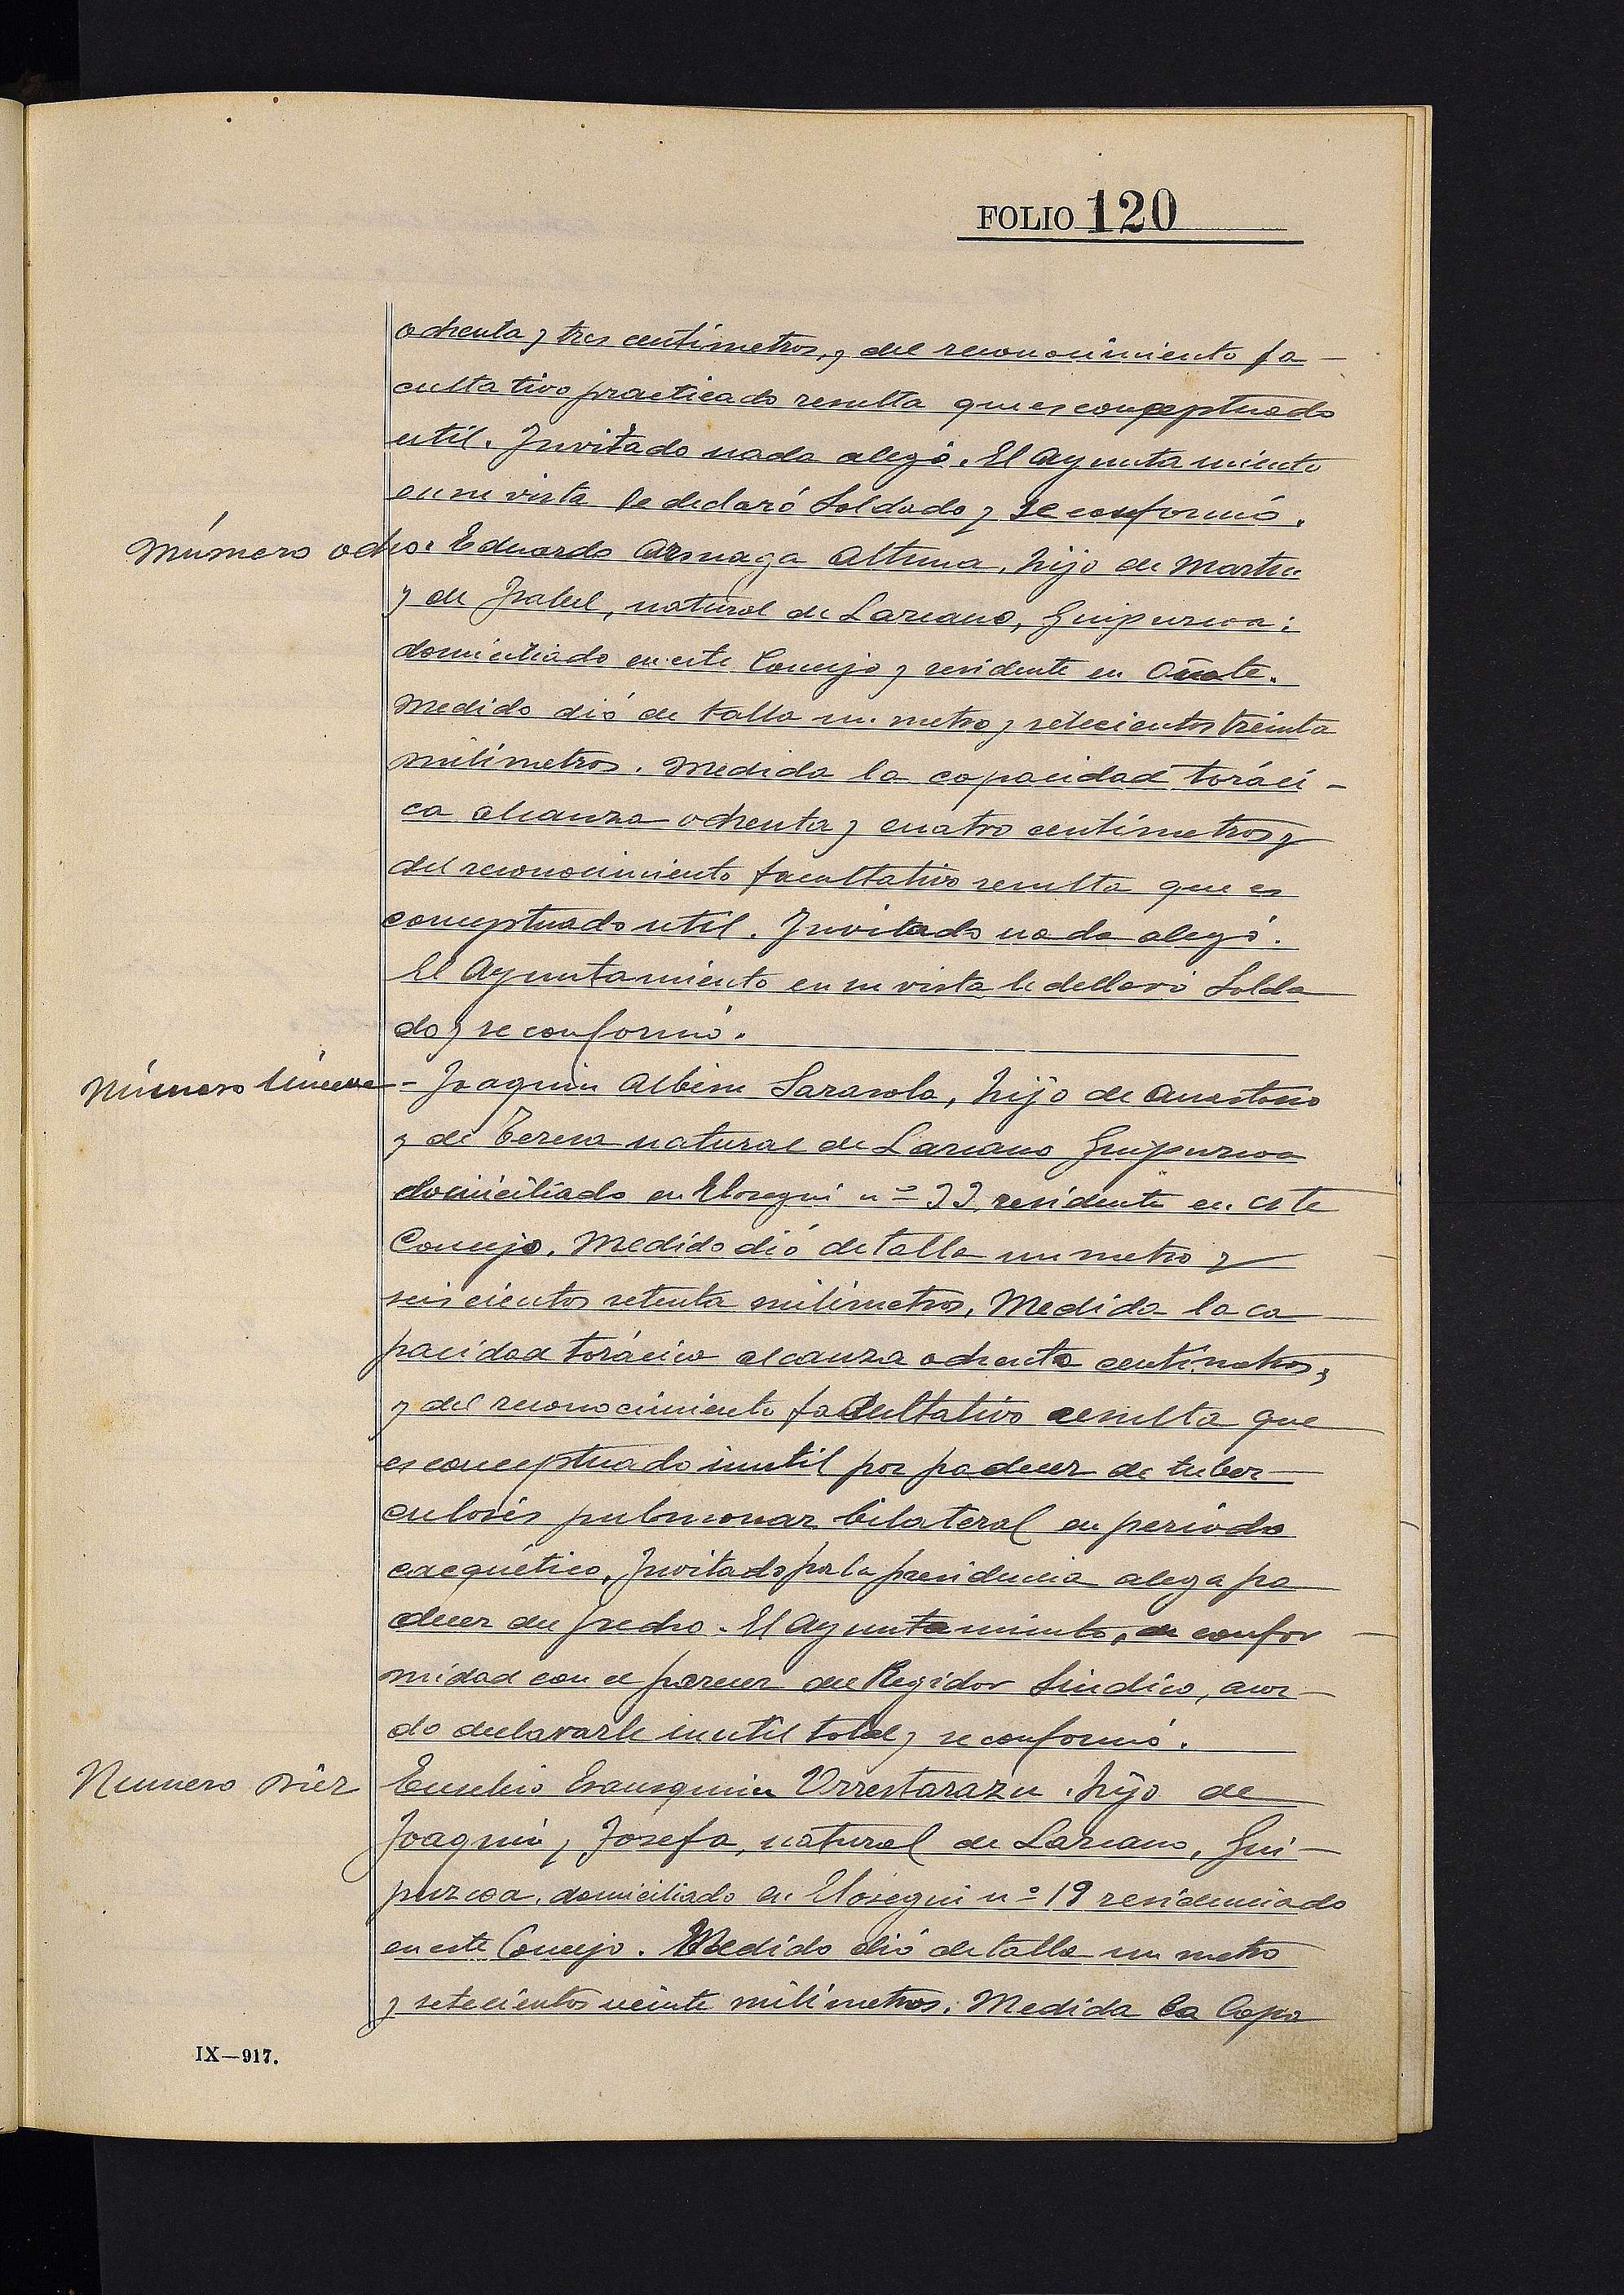 FOLIO 120
ochenta y tres centímetros, y del reconocimiento fa-
cultativo practicado resulta que es conceptuado
util. Invitado nada alegó. El Ayuntamiento
en su vista le declaró Soldado y se conformó.
Número ocho. Eduardo Arsuaga Altuna, hijo de Martin
y de Isabel, natural de Lazcano, Guipuzcoa;
domiciliado en este Concejo y residente en Oñate.
Medido dió de talla un metro y setecientos treinta
milímetros. Medida la capacidad toráci-
ca alcanza ochenta y cuatro centímetros y
del reconocimiento facultativo resulta que es
conceptuado util. Invitado nada alegó.
El Ayuntamiento en su vista le declaró Solda
do y se conformó.
Número nueve - Joaquin Albisu Sarasola, hijo de Anastasio
y de Teresa natural de Lazcano Guipuzcoa
domiciliado en Elosegui nº 33, residente en este
Concejo. Medido dió de talla un metro y
seiscientos setenta milímetros. Medida la ca
pacidad torácica alcanza ochenta centímetros,
y del reconocimiento facultativo resulta que
es conceptuado inutil por padecer de tuber-
culosis pulmonar bilateral en periodo
caequético. Invitado por la presidencia alega pa
decer del pecho. El Ayuntamiento, de confor
midad con el parecer del Regidor Síndico, acor-
do declararle inutil total y se conformó.
Numero diez Eusebio Esausquin Urrestarazu, hijo de
Joaquin y Josefa, natural de Lazcano, Gui-
puzcoa, domiciliado en Elosegui nº 19 residenciado
en este Concejo. Medido dió de talla un metro
y setecientos veinte milímetros. Medida la Capa
IX—917.